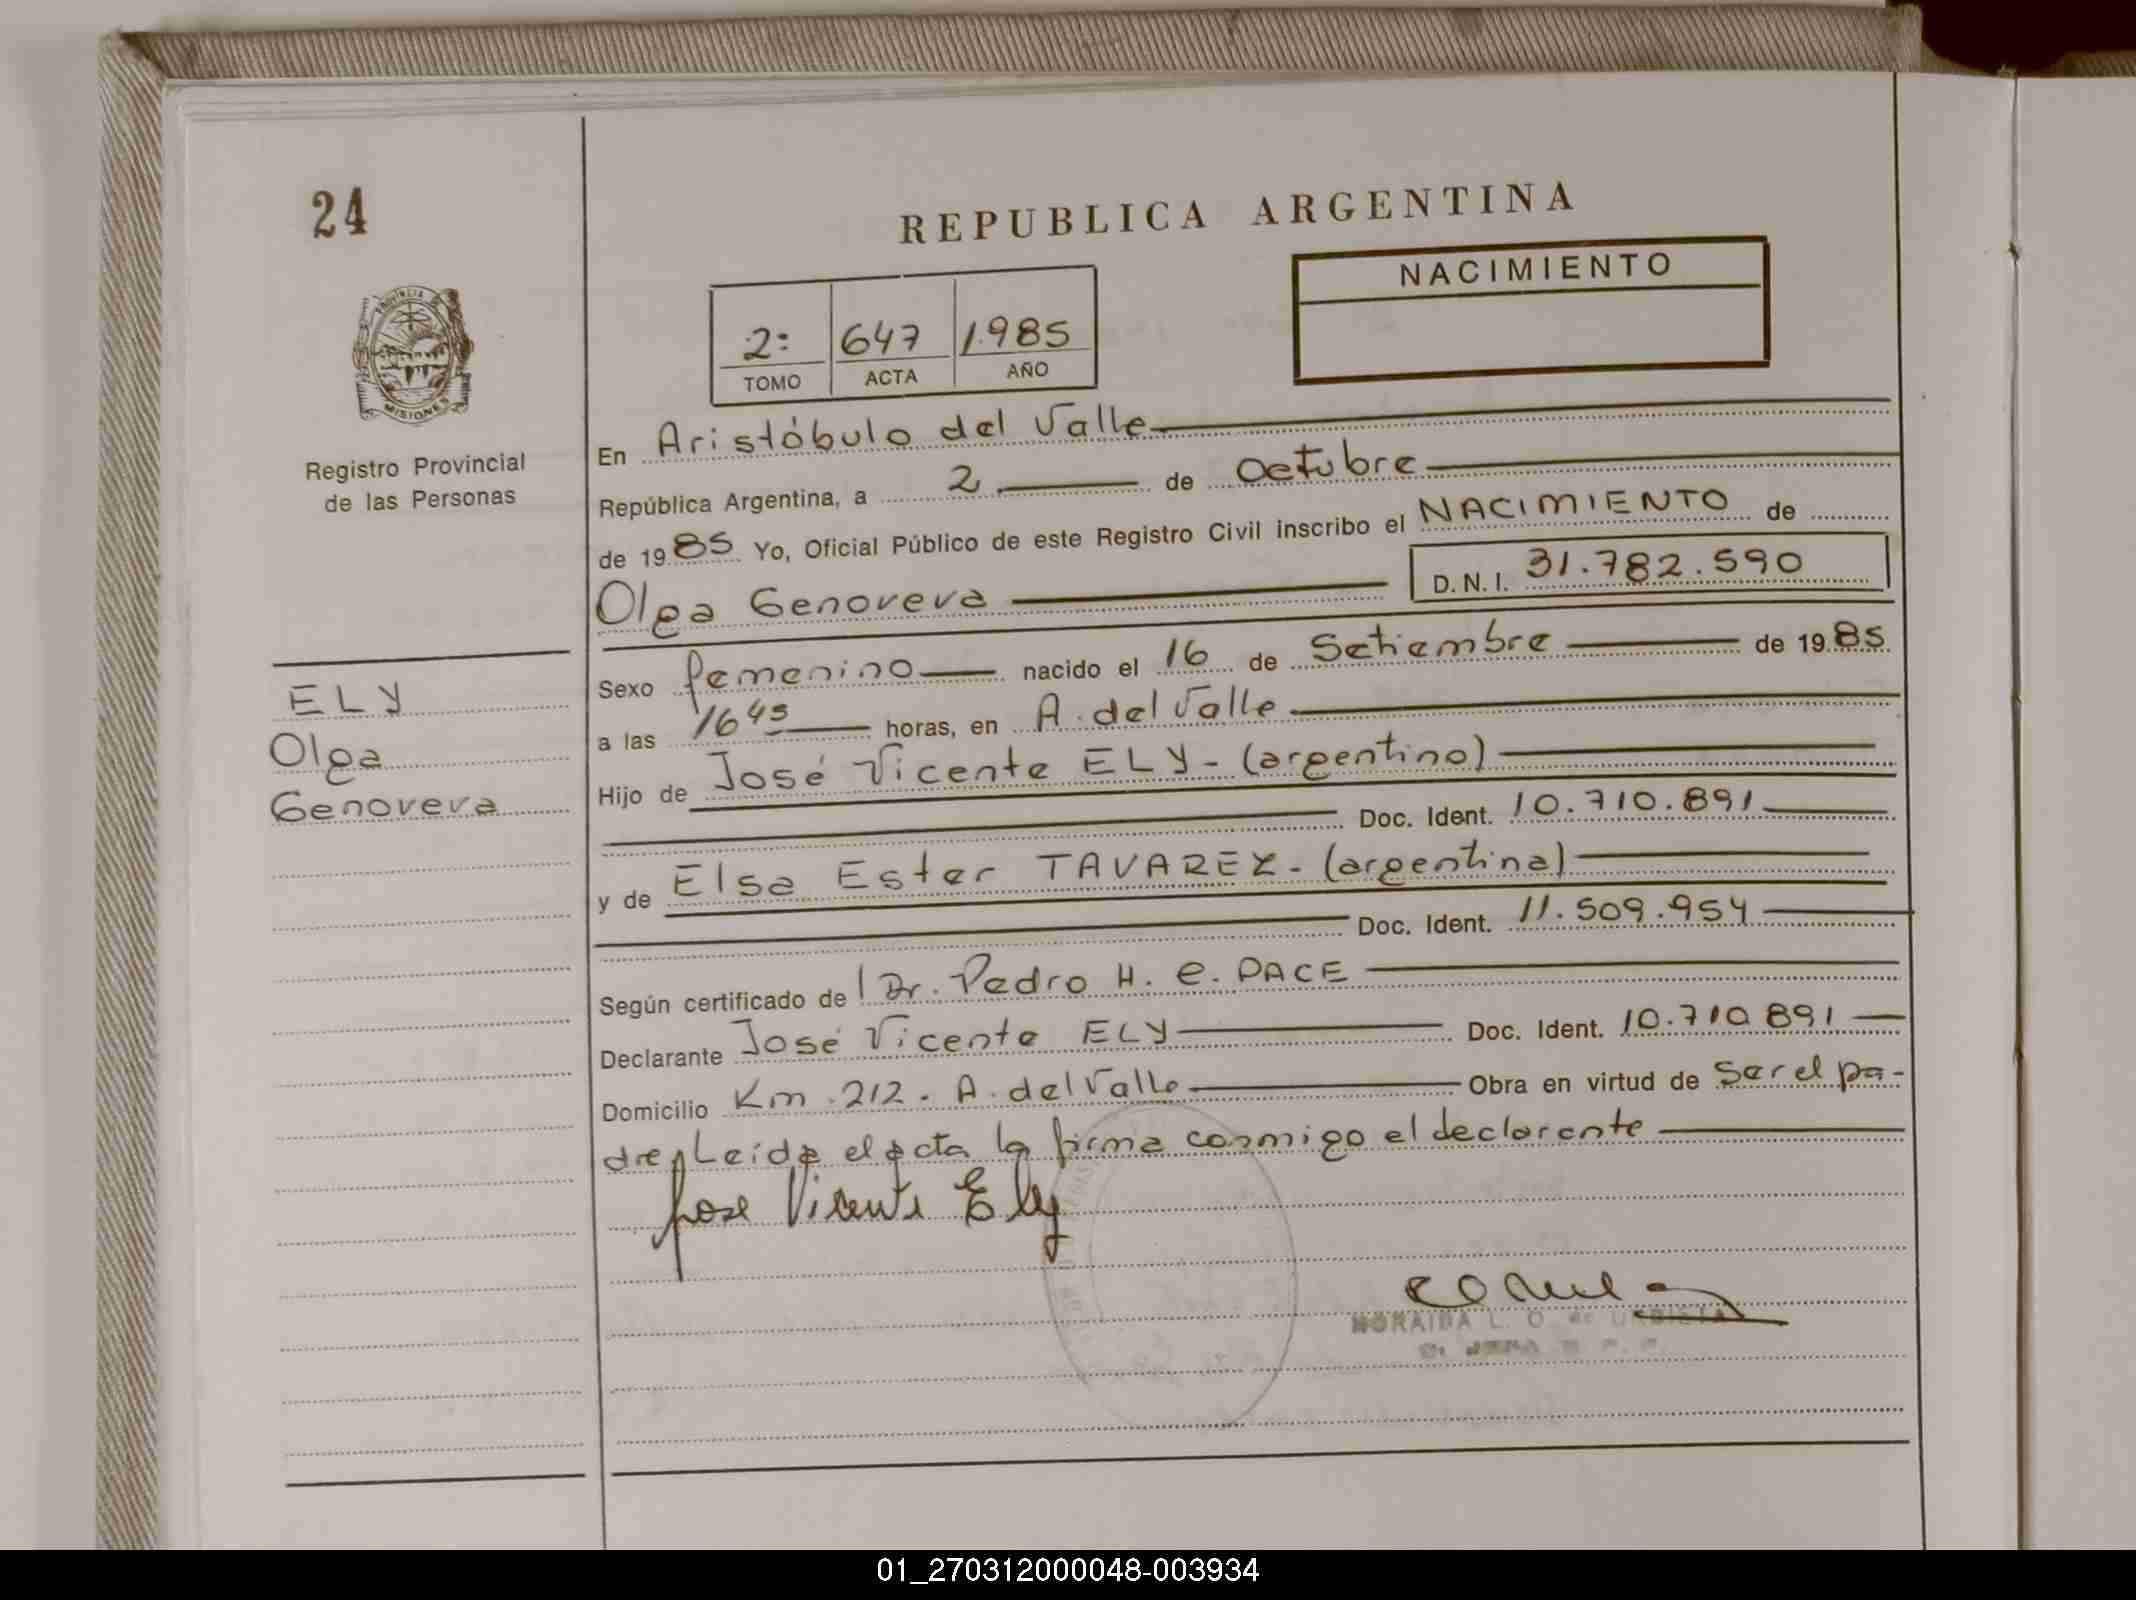 24
REPUBLICA ARGENTINA
NACIMIENTO
2: 647 1.985
TOMO ACTA AÑO
PROVINCIA DE
MISIONES
Registro Provincial
de las Personas
ELY
Olga
Genoveva
En Aristóbulo del Valle
República Argentina, a 2 de Octubre
de 1985 Yo, Oficial Público de este Registro Civil inscribo el NACIMIENTO de
Olga Genoveva D.N.I. 31.782.590
Sexo femenino nacido el 16 de Setiembre de 1985
a las 16 45 horas, en A. del Valle
Hijo de José Vicente ELY - (argentino)
Doc. Ident. 10.710.891
y de Elsa Ester TAVAREZ - (argentina)
Doc. Ident. 11.509.954
Según certificado de Dr. Pedro H. e. PACE
Declarante José Vicente ELY Doc. Ident. 10.710.891
Domicilio Km. 212. A. del Valle Obra en virtud de Ser el pa-
dre, Leída el acta la firma conmigo el declarante
Jose Vicente Ely
NORAIDA L. O. de
01_270312000048-003934